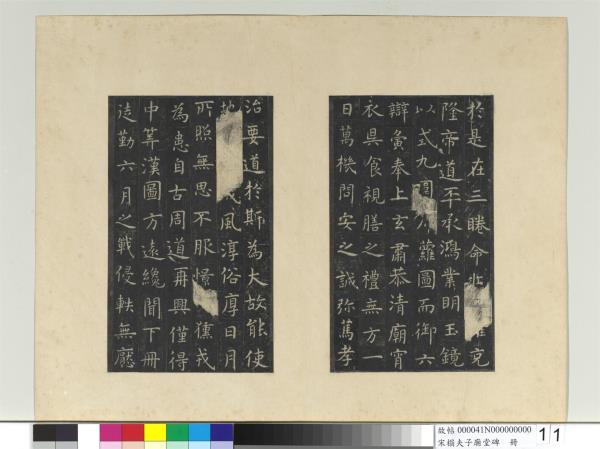 於是在三睠命 克
隆帝道丕承鴻業明玉鏡
以式九 蘿圖而御六
辯彝奉上玄肅恭清廟宵
衣具食視膳之禮無方一
日萬機問安之誠弥篤孝
治要道於斯為大故能使
地 風淳俗厚日月
所照無思不服憬 獯戎
為患自古周道再興僅得
中筭漢圖方遠纔聞下冊
徒勤六月之戰侵軼無厭
故帖 000041N000000000
宋搨夫子廟堂碑 冊
11